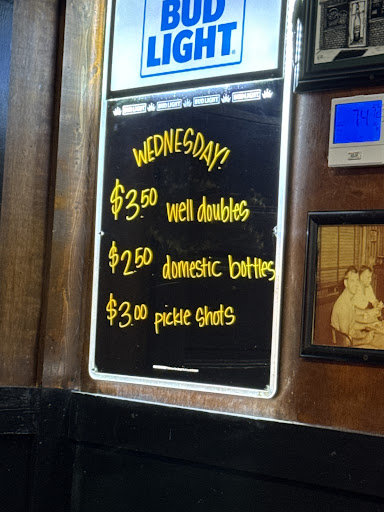 BUD
LIGHT
BUD LIGHT BUD LIGHT BUD LIGHT BUD LIGHT
WEDNESDAY!
$3.50 well doubles
$2.50 domestic bottles
$3.00 pickle shots
74